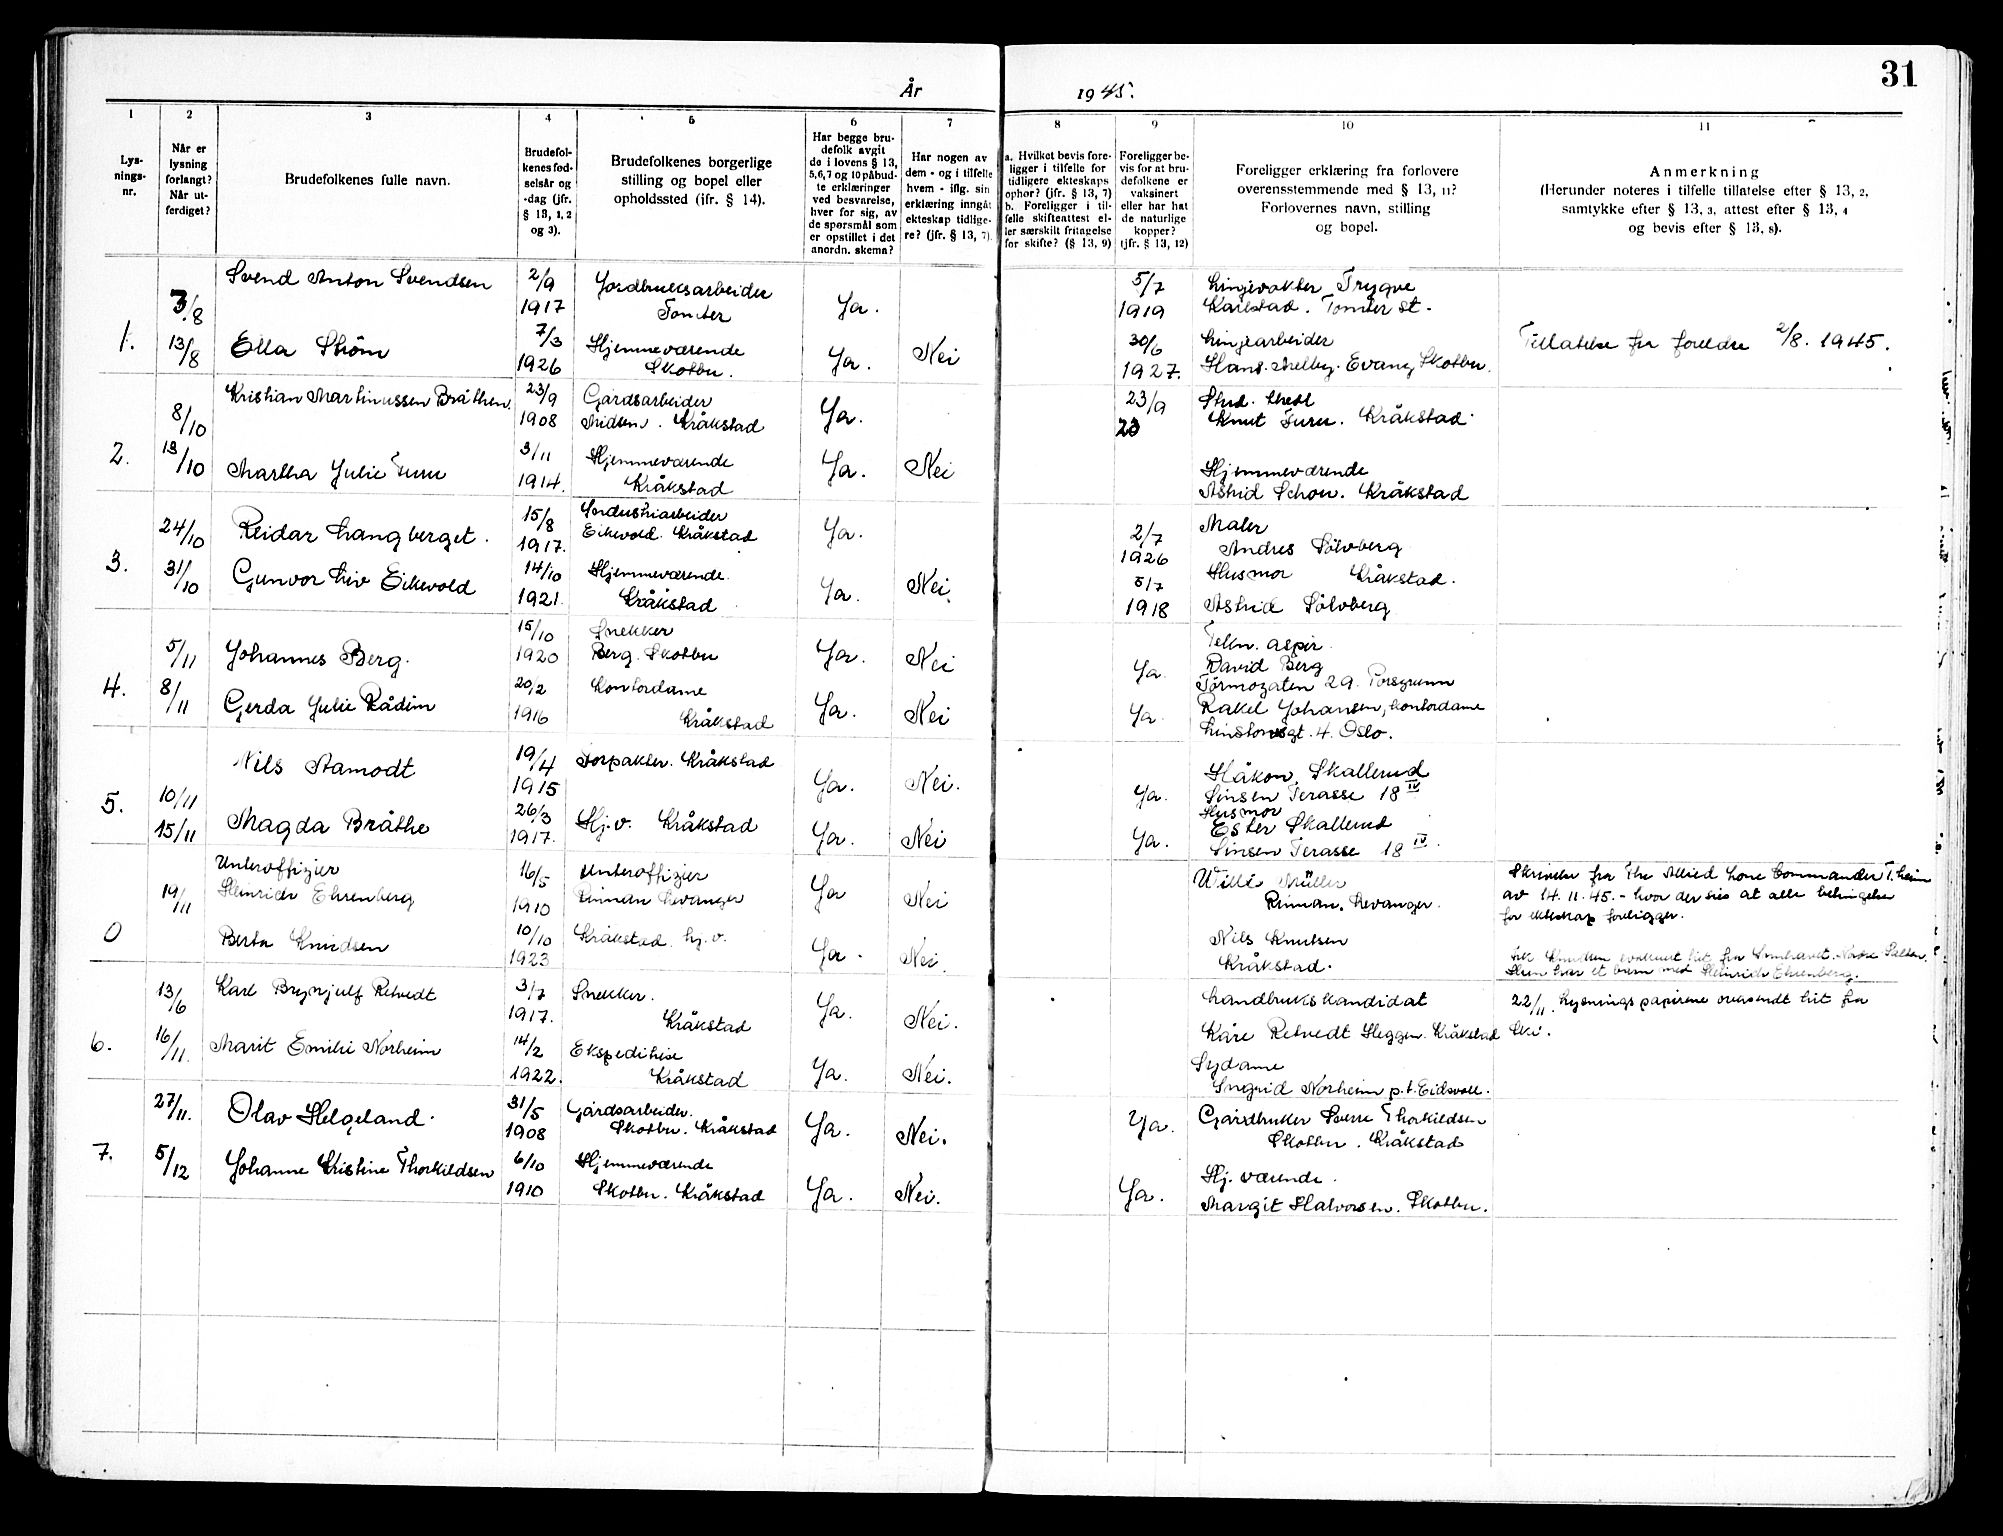 31
År 1945.
1 2 3 4 5 6 7 8 9 10 11
Lys-
nings-
nr.
Når er
lysning
forlangt?
Når ut-
ferdiget?
Brudefolkenes fulle navn.
Brudefol-
kenes fød-
selsår og
-dag (jfr.
§ 13, 1, 2
og 3).
Brudefolkenes borgerlige
stilling og bopel eller
opholdssted (ifr. § 14).
Har begge bru-
defolk avgit
de i lovens § 13,
5,6,7 og 10 påbud-
te erklæringer
ved besvarelse,
hver for sig, av
de spørsmål som
er opstillet i det
anordn. skema?
Har nogen av
dem - og i tilfelle
hvem - iflg. sin
erklæring inngåt
ekteskap tidlige-
re? (jfr. § 13, 7).
a. Hvilket bevis fore-
ligger i tilfelle for
tidligere ekteskaps
ophør? (jfr. § 13, 7)
b. Foreligger i til-
felle skifteattest el-
ler særskilt fritagelse
for skifte? (§ 13, 9)
Foreligger be-
vis for at bru-
defolkene er
vaksinert
eller har hat
de naturlige
kopper?
(jfr. § 13, 12)
Foreligger erklæring fra forlovere
overensstemmende med § 13, 11?
Forlovernes navn, stilling
og bopel.
Anmerkning
(Herunder noteres i tilfelle tillatelse efter § 13, 2,
samtykke efter § 13, 3, attest efter § 13, 4
og bevis efter § 13, 8).
1.
3/8 Svend Anton Svendsen 2/9 1917 Jordbruksarbeider
Tomter Ja. 5/7 1919 Linjevokter Trygve
Karlstad. Tomter st.
13/8 Ella Strøm 7/3 1926 Hjemmeværende
Skotbu. Ja. Nei 30/6 1927. Linjearbeider
Hans Melby. Evang Skotbu. Tillatelse fra foreldre 2/8. 1945.
2.
8/10 Kristian Martinussen Bråthen 23/9 1908 Gårdsarbeider
Kråkstad Ja. 23/9 23 Stud. med
Knut Furu. Kråkstad
13/10 Martha Julie Furu 3/11 1914. Hjemmeværende
Kråkstad Ja. Nei Hjemmeværende
Astrid Schou. Kråkstad
3.
24/10 Reidar Langberget. 15/8 1917. Industriarbeider
Eikevold. Kråkstad Ja. 2/7 1926 Maler
Andres Sölvberg
31/10 Gunvor Liv Eikevold 14/10 1921. Hjemmeværende.
Kråkstad Ja. Nei. 5/7 1918 Husmor Kråkstad.
Astrid Sölvberg
4.
5/11 Johannes Berg. 15/10 1920 Snekker
Berg. Skotbu Ja. Nei Ja. Tekn. aspir.
David Berg
Tormogaten 29. Porsgrunn
8/11 Gerda Julie Rådim 20/2 1916 Kontordame
Kråkstad Ja. Nei Ja. Rakel Johansen, kontordame
gt. 4. Oslo.
5.
10/11 Nils Aamodt 19/4 1915 Forpakter. Kråkstad Ja. Nei. Ja. Håkon Skallerud
Sinsen Terasse 18 IV
15/11 Magda Bråthe 26/3 1917. Hj.v. Kråkstad Ja. Nei Ja. Husmor
Ester Skallerud
Sinsen Terasse 18 IV.
0
19/11 Unteroffizier
Heinrich Ehrenberg 16/5 1910 Unteroffizier
Rinnan Levanger Ja Nei Willi Müller
Rinnan. Levanger. Skrivelse fra The Allied Zone Commander T.heim
av 14. 11. 45. - hvor der sies at alle betingelser
for ekteskap foreligger.
Berta Knudsen 10/10 1923 Kråkstad hj.v. Ja. Nei. Nils Knutsen
Kråkstad. Frk Knudsen evakuert hit fra
Hun har et barn med Heinrich Ehrenberg.
6.
13/6 Karl Brynjulf Retvedt 3/7 1917. Snekker.
Kråkstad Ja. Nei. Landbrukskandidat
Kåre Retvedt Heggen. Kråkstad 22/11. Lysningspapirene oversendt hit fra
Ski.
16/11. Marit Emilie Norheim 14/2 1922. Ekspeditrise
Kråkstad Ja. Nei. Sydame
Ingrid Norheim p.t. Eidsvoll.
7.
27/11. Olav Helgeland. 31/5 1908 Gårdsarbeider.
Skotbu. Kråkstad Ja. Nei. Ja. Gårdbruker Sverre Thorkildsen
Skotbu. Kråkstad
5/12 Johanne Kristine Thorkildsen 6/10 1910 Hjemmeværende
Skotbu. Kråkstad Ja. Nei. Ja. Hj. værende.
Margit Halvorsen. Skotbu.